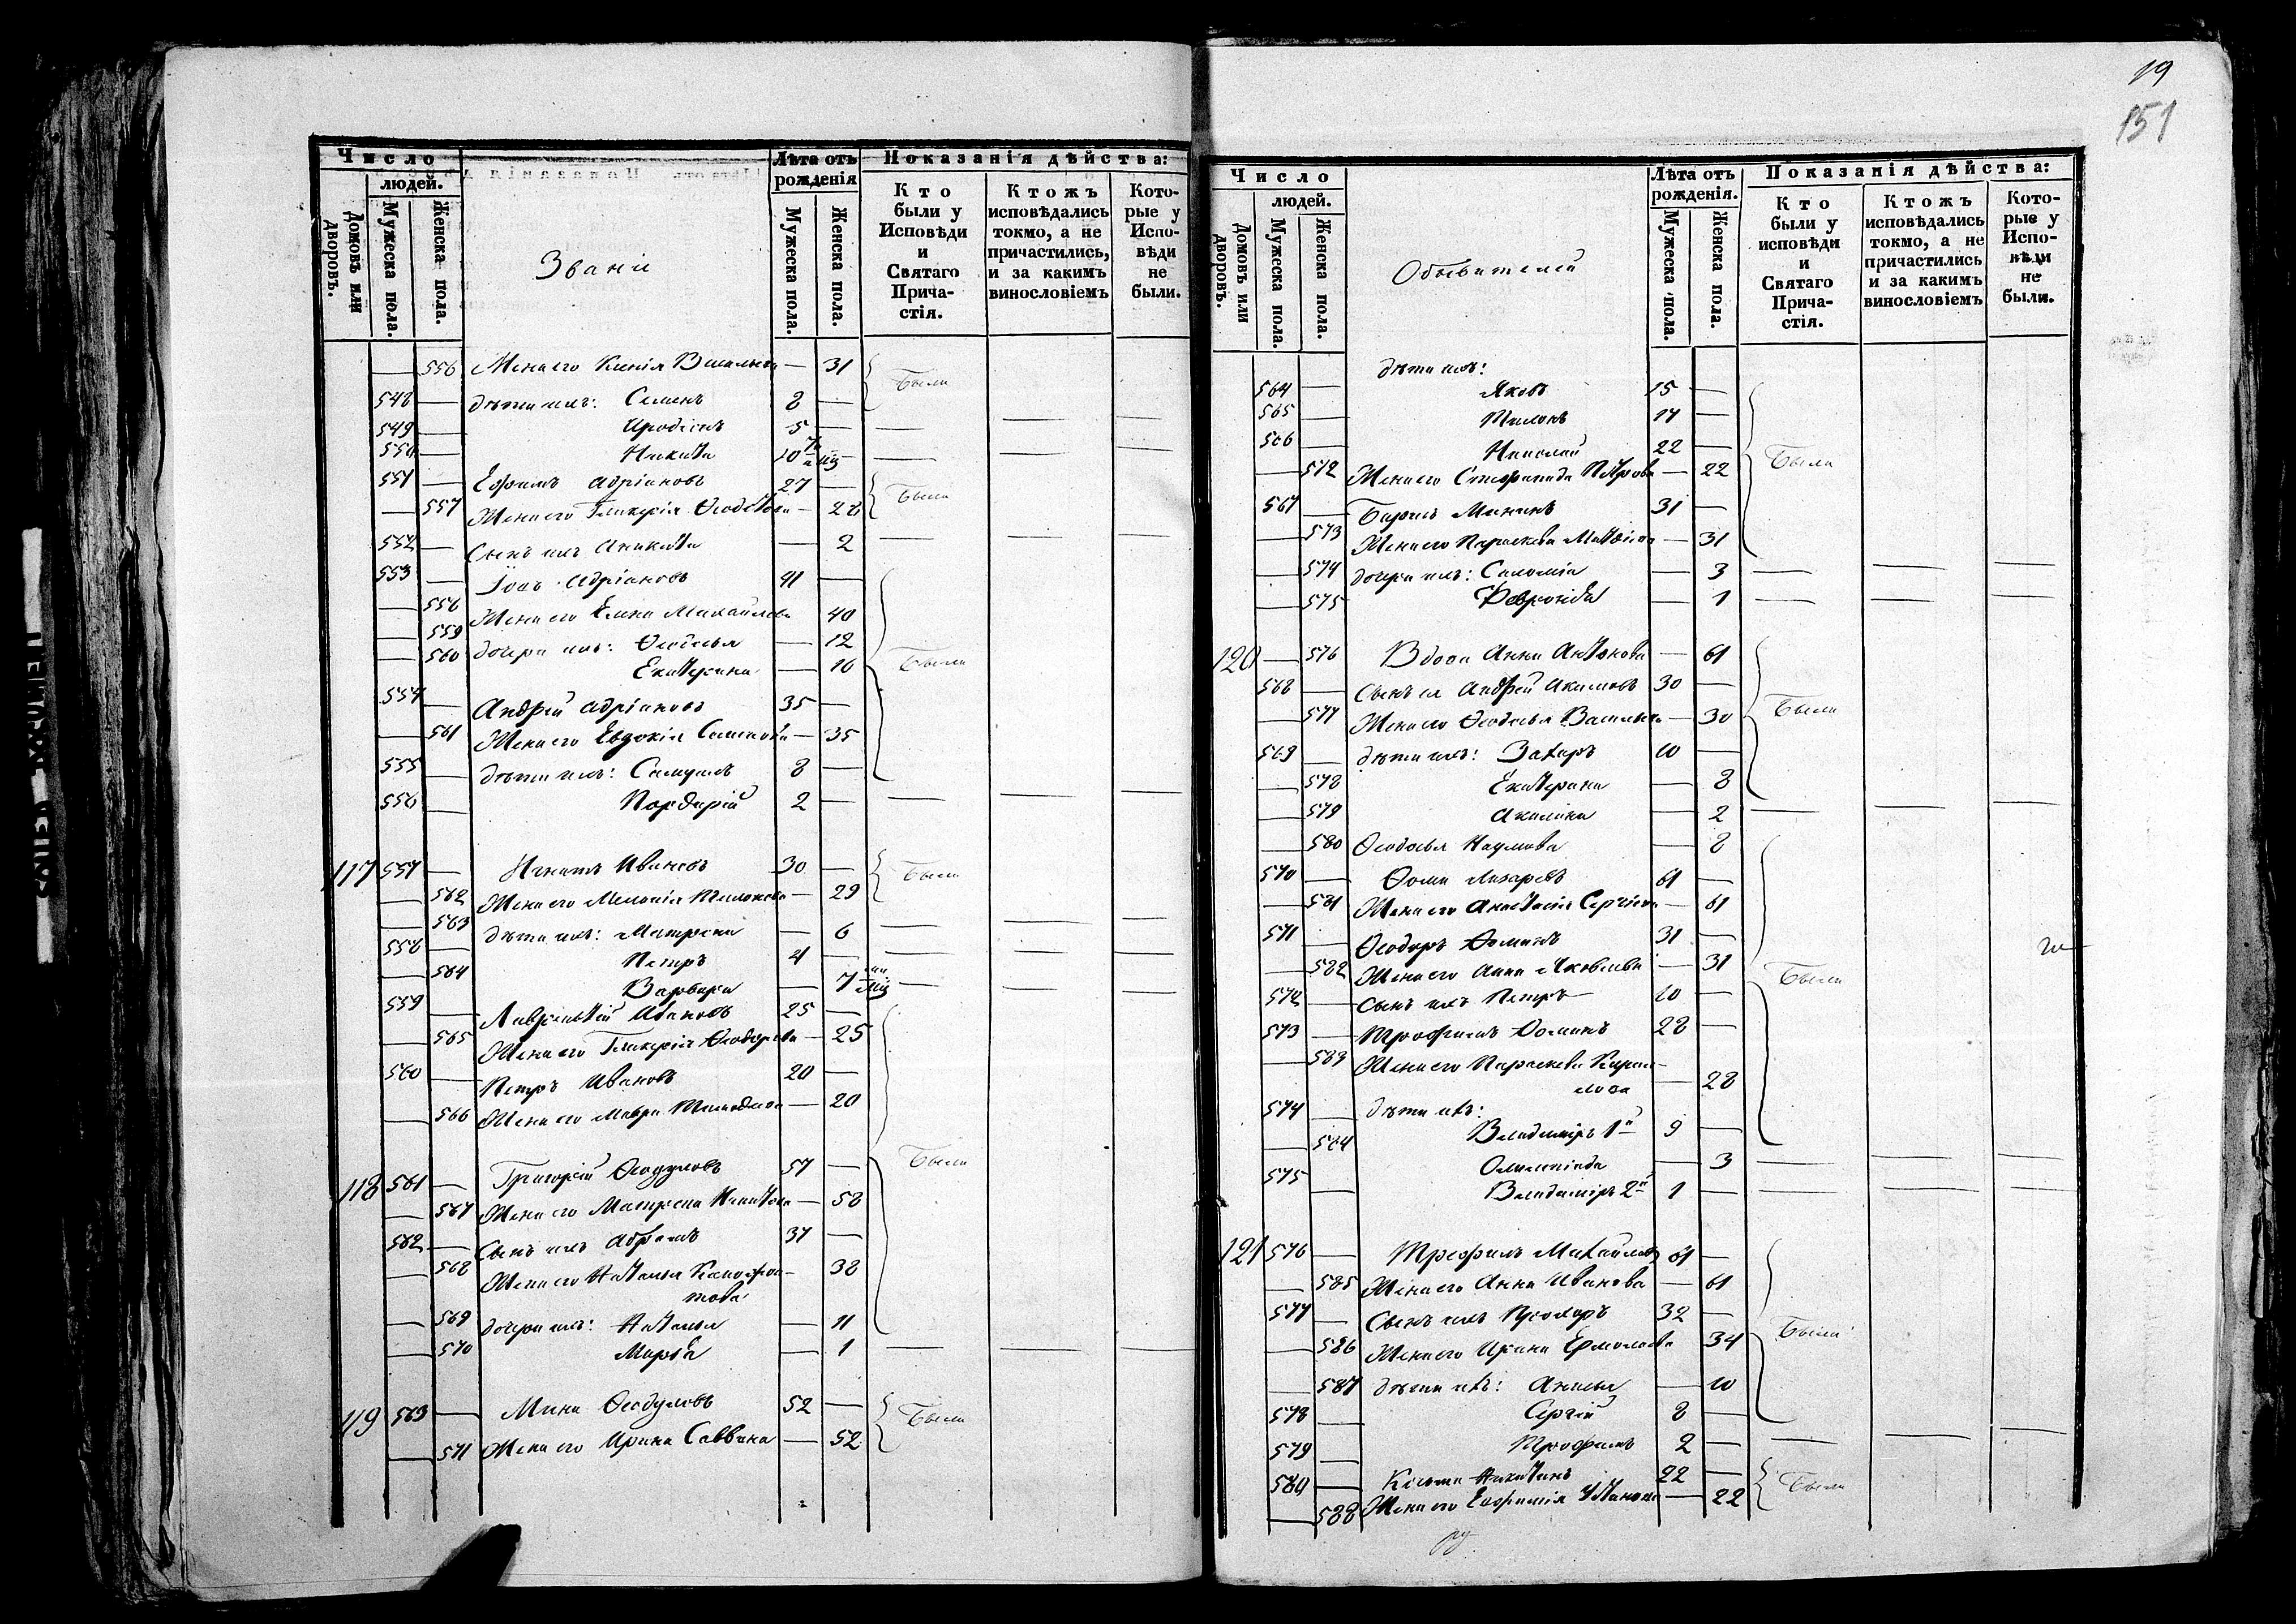 Число
людей.
Домовъ или дворовъ.
Мужеска пола.
Женска пола.
Званіе
Лѣта отъ рожденія
Мужеска пола.
Женска пола.
Показанія дѣйства:
Кто были у Исповѣди и Святаго Прича-стія.
Ктожъ исповѣдались токмо, а не причастились, и за какимъ винословіемъ
Кото-рые у Испо-вѣди не были.
— 556 Жена его Ксенія Васильева — 31 Были
548 — дѣти ихъ: Семенъ 8 —
549 — Иродіонъ 5 —
550 — Никита 10
551 — Ефремъ Адріановъ 27 — Были
— 557 Жена его Гликерія — 28
552 — Сынъ ихъ Аникита — 2
553 — Іовъ Адріановъ 41 —
— 558 Жена его Елена Михайлова 40
— 559 дочери ихъ: Ѳеодосья — 12
— 560 Екатерина — 10 Были
554 — Андрей Адріановъ 35 —
— 561 Жена его Евдокія Семенова — 35
555 — дѣти ихъ: Самуилъ 8 —
556 — Порфирій 2 —
117 557 — Игнатъ Ивановъ 30 — Были
— 562 Жена его Меланія — 29
— 563 дѣти ихъ: Матрена — 6
558 — Петръ 4 —
— 564 Варвара — 7
559 — Лаврентій Ивановъ 25 —
— 565 Жена его Гликерія Ѳеодорова — 25
560 — Петръ Ивановъ 20 —
— 566 Жена его Мавра — 20
118 561 — Григорій Ѳеодуловъ 57 — Были
— 567 Жена его Матрена Никитина — 58
562 — Сынъ ихъ Абрамъ 37 —
— 568 Жена его Наталья 38
— 569 дочери ихъ: Наталья — 11
— 570 Марѳа — 1
119 563 — Мина Ѳеодуловъ 52 — Были
— 571 Жена его Ирина Саввина — 52
19
151
Число
людей.
Домовъ или дворовъ.
Мужеска пола.
Женска пола.
Обывателей
Лѣта отъ рожденія.
Мужеска пола.
Женска пола.
Показанія дѣйства:
Кто были у исповѣди и Святаго Прича-стія.
Ктожъ исповѣдались токмо, а не причастились и за какимъ винословіемъ
Кото-рые у Испо-вѣди не были.
дѣти ихъ:
564 — Яковъ 15 —
565 — 14 —
566 — Николай 22 — Были
— 572 Жена его Степанида Петрова — 22
567 — Борисъ Мининъ 31 —
— 573 Жена его Параскева Матѳіева — 31
— 574 дочери ихъ: Саломія — 3
— 575 Февронія — 1
120 — 576 Вдова Анна Антонова — 61
568 — Сынъ ея Андрей Акимовъ 30 —
— 577 Жена его Ѳеодосья Васильева — 30 Были
569 — дѣти ихъ: Захаръ 10 —
— 578 Екатерина — 8
— 579 Акилина — 2
— 580 Ѳеодосья Наумова — 8
570 — Ѳома Лазаревъ 61 —
— 581 Жена его Анастасія Сергіева — 61
571 — Ѳеодоръ Ѳоминъ 31 —
— 582 Жена его Анна Яковлева — 31 Были
572 — Сынъ ихъ Петръ 10 —
573 — Трофимъ Ѳоминъ 28 —
— 583 Жена его Параскева Кирил-
лова — 28
574 — дѣти ихъ:
— 584 Владиміръ 1й 9 —
575 Олимпіада — 3
— Владиміръ 2й 1 —
121 576 — Трофимъ Михайловъ 61 —
— 585 Жена его Анна Иванова — 61
577 — Сынъ ихъ 32 —
— 586 Жена его Ирина Ермолаева 34 Были
— 587 дѣти ихъ: Анисья — 10
578 — Сергій 8 —
579 — Трофимъ 2 —
580 — Козьма Никитинъ 22 — Были
— 588 Жена его Евфимія — 22